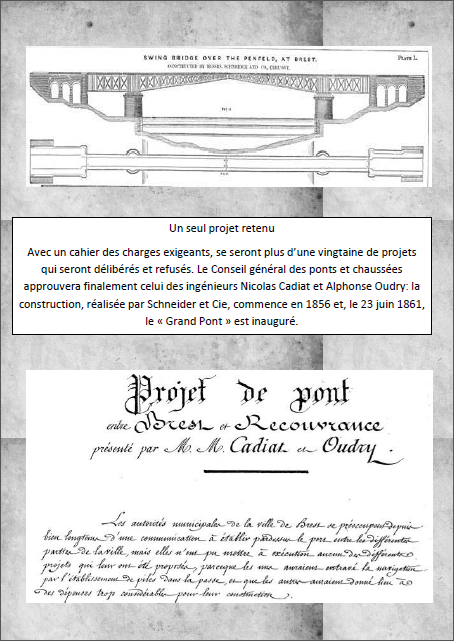 SWING BRIDGE OVER THE PENFELD, AT BREST.
PLATE 1.
CONSTRUCTED BY MESSRS. SCHNEIDER AND CO, CREUSOT.
Un seul projet retenu
Avec un cahier des charges exigeants, se seront plus d'une vingtaine de projets
qui seront délibérés et refusés. Le Conseil général des ponts et chaussées
approuvera finalement celui des ingénieurs Nicolas Cadiat et Alphonse Oudry: la
construction, réalisée par Schneider et Cie, commence en 1856 et, le 23 juin 1861,
le « Grand Pont » est inauguré.
Projet de pont
entre Brest et Recouvrance
présenté par M. M. Cadiat et Oudry.
Les autorités municipales de la ville de Brest se préoccupent depuis
bien longtems d'une communication à établir pardessus le port entre les différentes
parties de la ville, mais elles n'ont pu mettre à exécution aucun des différents
projets qui leur ont été proposés, parceque les uns auraient entravé la navigation
par l'établissement de piles dans la passe, et que les autres auraient donné lieu à
des dépenses trop considérables pour leur construction.